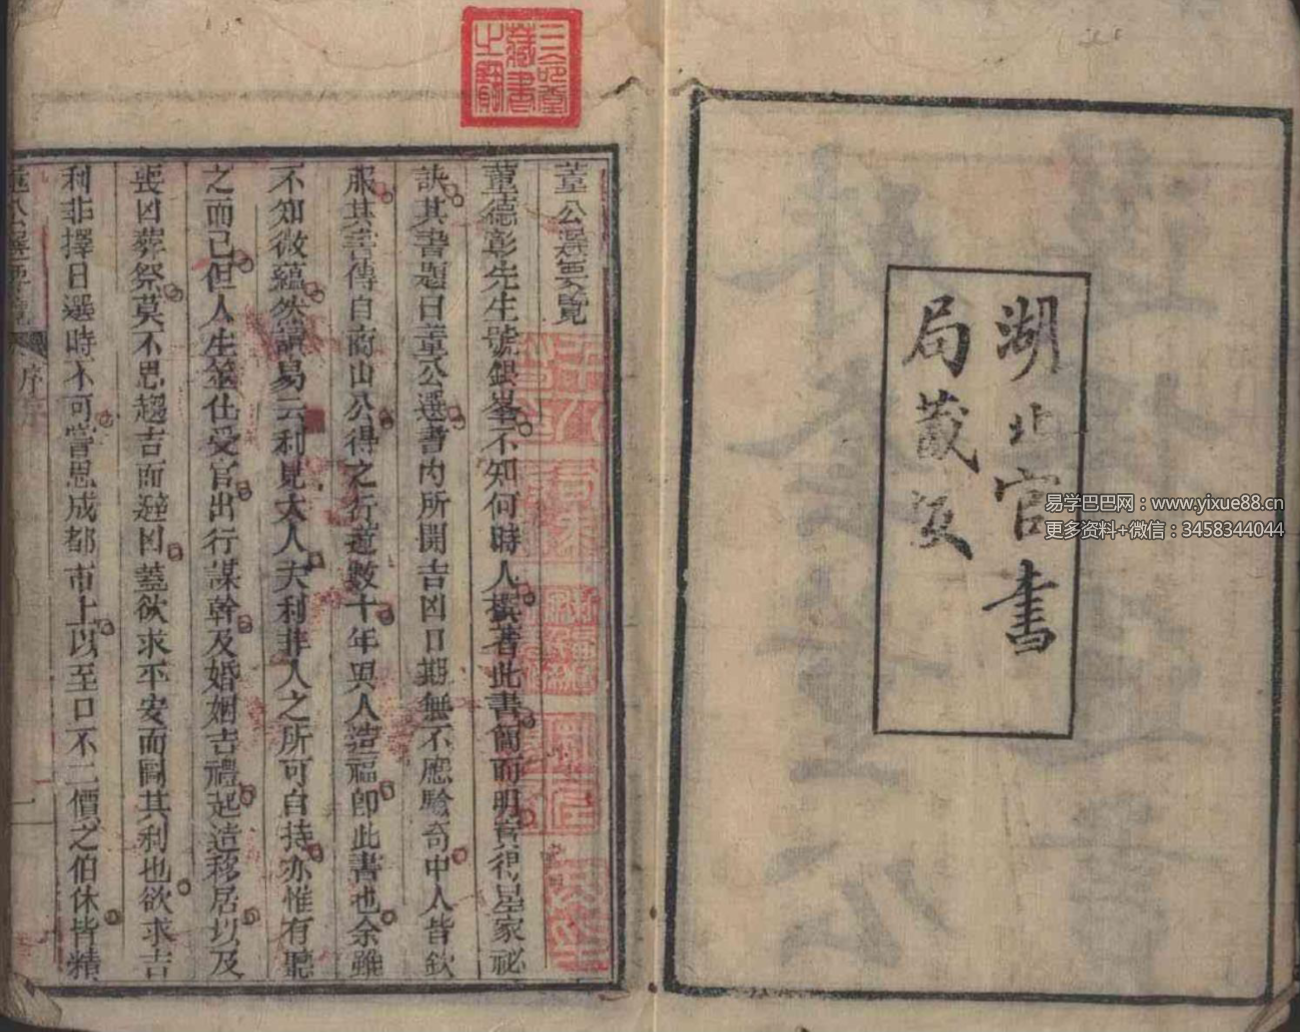 湖北官書
局藏板
董公選要覽
董德彰先生號銀峯不知何時人撰著此書簡而明實得星家祕
訣其書題曰董公選書內所開吉凶日期無不應驗奇中人皆欽
服其書傳自商山公得之行遊數十年與人造福卽此書也余雖
不知微蘊然讀易云利見大人夫利非人之所可自持亦惟有聽
之而已但人生筮仕受官出行謀幹及婚姻吉禮起造移居以及
喪凶葬祭莫不思趨吉而避凶蓋欲求平安而圖其利也欲求吉
利非擇日選時不可嘗思成都市上以至口不二價之伯休皆精
董公選要覽 序 一
三命堂
藏書
之寶
易学巴巴网：www.yixue88.cn
更多资料+微信：3458344044